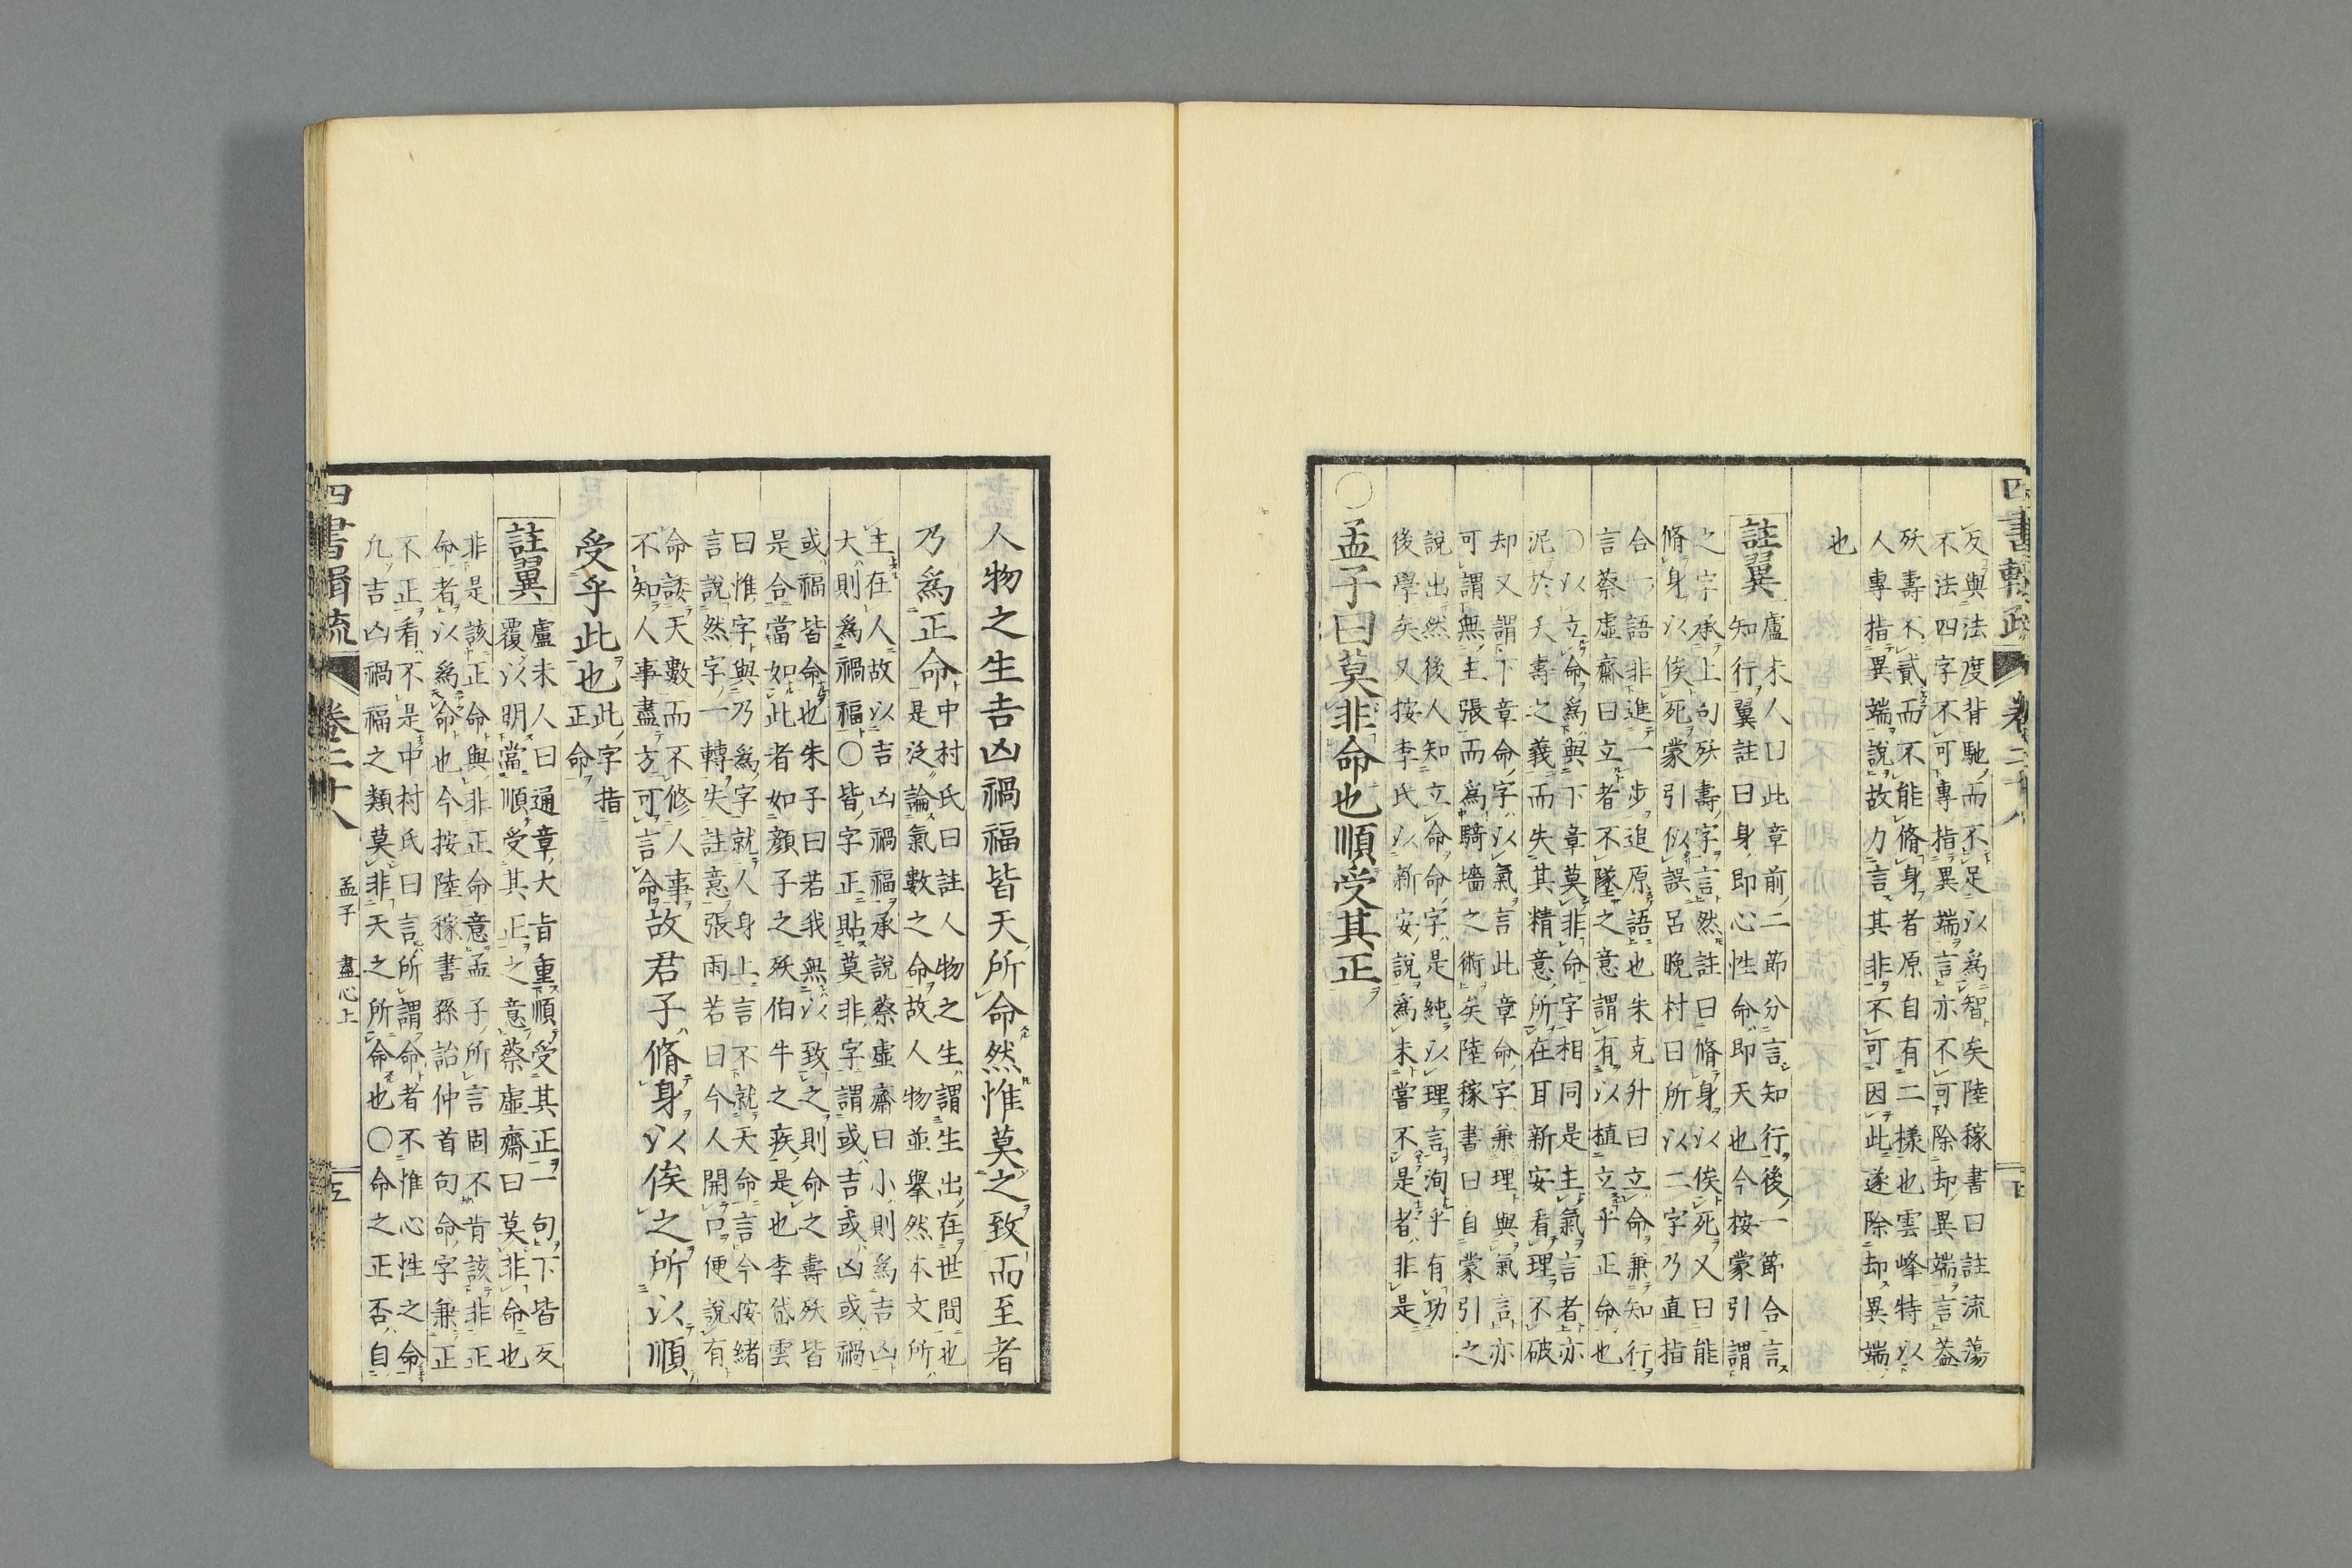 反與法度背馳而不足以爲智矣陸稼書曰註流蕩
不法四字不可專指異端言亦不可除却異端言蓋
殀壽不貳而不能脩身者原自有二樣也雲峰特以
人專指異端說故力言其非不可因此遂除却異端
也
註翼
盧未人曰此章前二節分言知行後一節合言
知行翼註曰身即心性命即天也今按蒙引謂
之字承上句殀壽字言然註曰脩身以俟死又曰能
脩身以俟死蒙引似誤呂晚村曰所以二字乃直指
合一語非進一步追原語也朱克升曰立命兼知行
言蔡虛齋曰立者不墜之意謂有以植立乎正命也
○以立命爲與下章莫非命字相同是主氣言者亦
泥於夭壽之義而失其精意所在耳新安看理不破
却又謂下章命字以氣言此章命字兼理與氣言亦
可謂無主張而爲騎墻之術矣陸稼書曰自蒙引之
說出然後人知立命命字是純以理言洵乎有功
後學矣又按李氏以新安說爲未嘗不是者非是
○孟子曰莫非命也順受其正
人物之生吉凶禍福皆天所命然惟莫之致而至者
乃爲正命
中村氏曰註人物之生謂生出在世間也
是泛論氣數之命故人物並舉然本文所
主在人故以吉凶禍福承說蔡虛齋曰小則爲吉凶
大則爲禍福○皆字正貼莫非字謂或吉或凶或禍
或福皆命也朱子曰若我無以致之則命之壽殀皆
是合當如此者如顏子之殀伯牛之疾是也李岱雲
曰惟字與乃爲字就人身上言不就天命言今按緒
言說然字一轉失註意張雨若曰今人開口便說有
命諉天數而不修人事
不知人事盡方可言命
故君子脩身以俟之所以順
受乎此也
此字指
正命
註翼
盧未人曰通章大旨重順受其正一句下皆反
覆以明當順受其正之意蔡虛齋曰莫非命也
非是該正命與非正命意孟子所言固不肯該非正
命者以爲命也今按陸稼書孫詒仲首句命字兼正
不正看不是中村氏曰言所謂命者不惟心性之命
凡吉凶禍福之類莫非天之所命也○命之正否自
卷二十八
孟子
盡心上